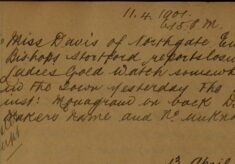 11.4.1901.
6/50 P.M.
Miss Davis of Northgate End
Bishops Stortford reports losing
Ladies Gold Watch somewhere
in the Town yesterday the
inst: Monagram on back D.
Makers name and No. unknown